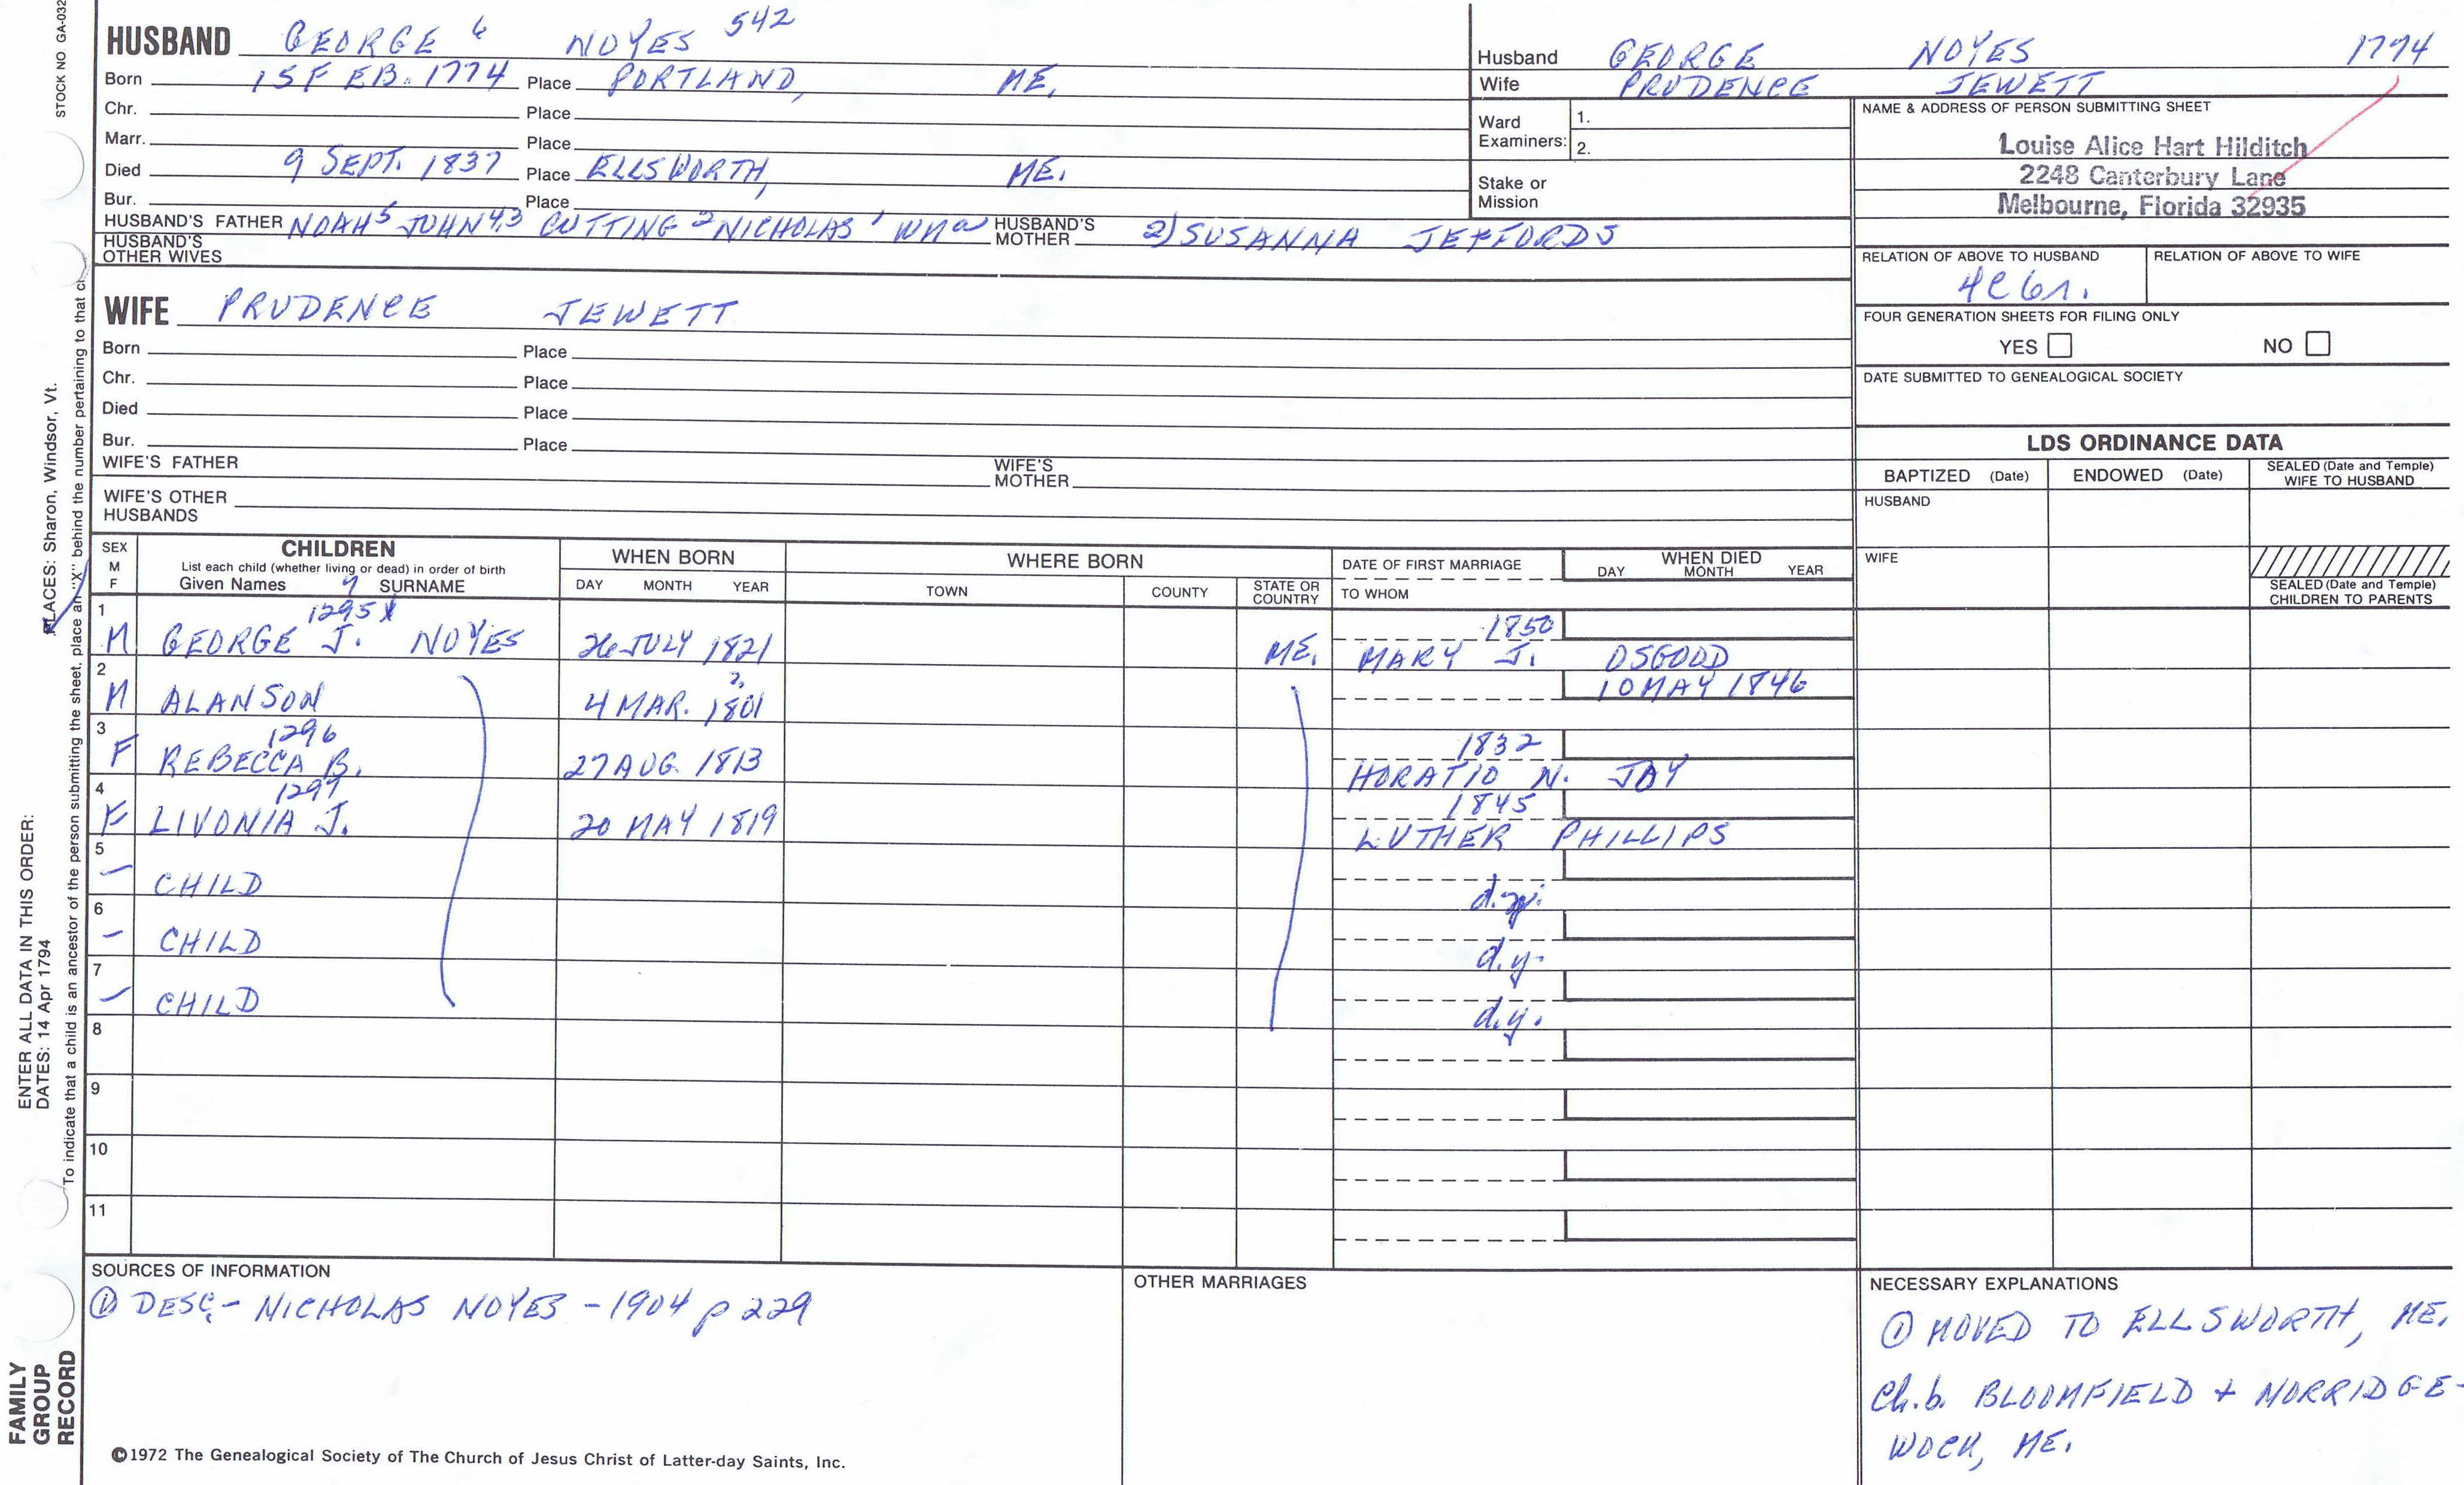 STOCK NO GA-032
HUSBAND GEORGE 6 NOYES 542
Born 15 FEB. 1774 Place PORTLAND, ME.
Chr. Place
Marr. Place
Died 9 SEPT. 1837 Place ELLSWORTH, ME.
Bur. Place
HUSBAND'S FATHER NOAH5 JOHN4,3 CUTTING2 NICHOLAS1 Wma HUSBAND'S MOTHER 2) SUSANNA JEFFORDS
HUSBAND'S OTHER WIVES
Husband GEORGE NOYES 1774
Wife PRUDENCE JEWETT
Ward Examiners: 1.
2.
Stake or Mission
NAME & ADDRESS OF PERSON SUBMITTING SHEET
Louise Alice Hart Hilditch
2248 Canterbury Lane
Melbourne, Florida 32935
RELATION OF ABOVE TO HUSBAND RELATION OF ABOVE TO WIFE
4C6r.
FOUR GENERATION SHEETS FOR FILING ONLY
YES NO
DATE SUBMITTED TO GENEALOGICAL SOCIETY
WIFE PRUDENCE JEWETT
Born Place
Chr. Place
Died Place
Bur. Place
WIFE'S FATHER WIFE'S MOTHER
WIFE'S OTHER HUSBANDS
LDS ORDINANCE DATA
BAPTIZED (Date) ENDOWED (Date) SEALED (Date and Temple) WIFE TO HUSBAND
HUSBAND
WIFE
SEALED (Date and Temple) CHILDREN TO PARENTS
SEX M F
CHILDREN
List each child (whether living or dead) in order of birth
Given Names 7 SURNAME
WHEN BORN
DAY MONTH YEAR
WHERE BORN
TOWN COUNTY STATE OR COUNTRY
DATE OF FIRST MARRIAGE
TO WHOM
WHEN DIED
DAY MONTH YEAR
1 1295x 1850
M GEORGE J. NOYES 26 JULY 1821 ME. MARY J. OSGOOD
2 2, 10 MAY 1846
M ALANSON 4 MAR. 1801
3 1296 1832
F REBECCA B. 27 AUG. 1813 HORATIO N. JOY
4 1297 1845
F LIVONIA J. 20 MAY 1819 LUTHER PHILLIPS
5
– CHILD d.y.
6
– CHILD d.y.
7
– CHILD d.y.
8
9
10
11
SOURCES OF INFORMATION
① DESC.- NICHOLAS NOYES - 1904 p 229
OTHER MARRIAGES
NECESSARY EXPLANATIONS
① MOVED TO ELLSWORTH, ME.
Ch. b. BLOOMFIELD + NORRIDGE-
WOCK, ME.
©1972 The Genealogical Society of The Church of Jesus Christ of Latter-day Saints, Inc.
FAMILY
GROUP
RECORD
ENTER ALL DATA IN THIS ORDER:
DATES: 14 Apr 1794
PLACES: Sharon, Windsor, Vt.
To indicate that a child is an ancestor of the person submitting the sheet, place an "X" behind the number pertaining to that